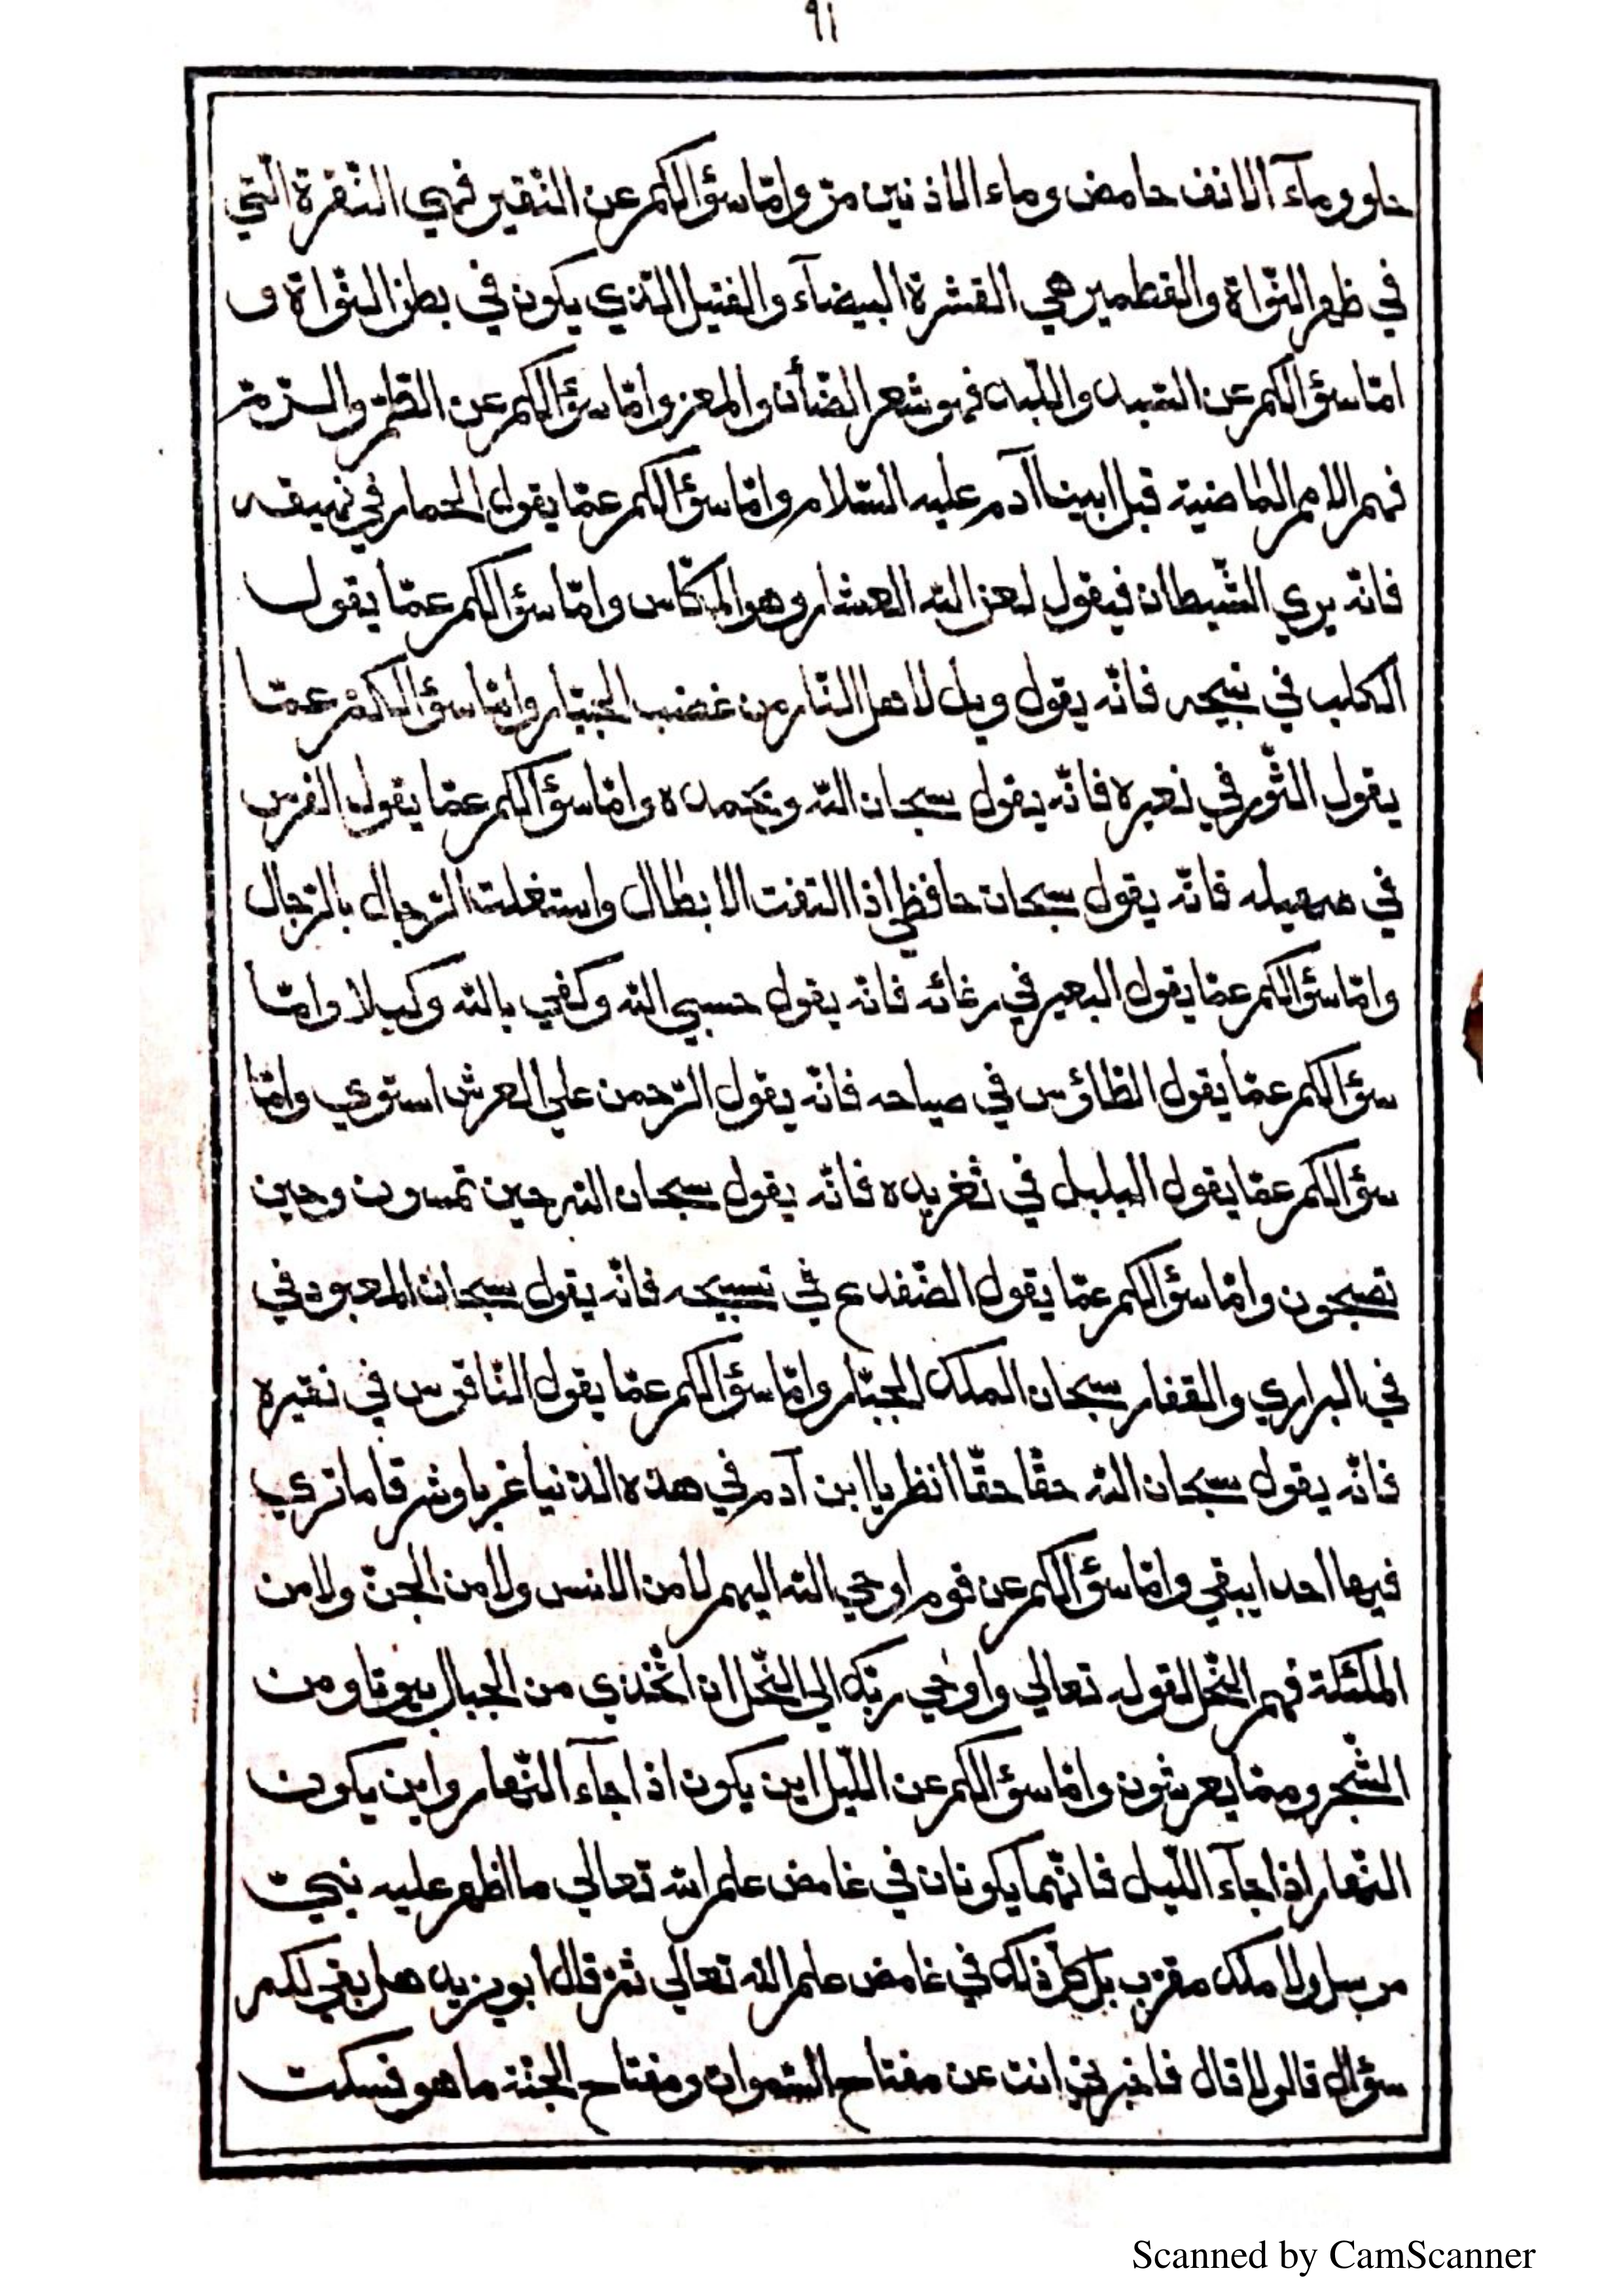 ٩١
حلو ومآء الانف حامض وماء الاذنين مرّ وامّا سؤالكم عن النّقير فهي النّقرة الّتي
في ظهر النّواة والقطمير هي القشرة البيضآء والفتيل الّذي يكون في بطن النّواة و
امّا سؤالكم عن السّبد واللّبد فهو شعر الضّأن والمعز وامّا سؤالكم عن الطّمّ والرّمّ
فهم الامم الماضية قبل ابينا آدم عليه السّلام وامّا سؤالكم عمّا يقول الحمار في نهيقه
فانّه يري الشّيطان فيقول لعن اللّه العشّار وهو المكّاس وامّا سؤالكم عمّا يقول
الكلب في نبيحه فانّه يقول ويل لاهل النّار من غضب الجبّار وامّا سؤالكم عمّا
يقول الثّور في نعيره فانّه يقول سبحان اللّه وبحمده وامّا سؤالكم عمّا يقول الفرس
في صهيله فانّه يقول سبحان حافظي اذا التفت الابطال واستغلت الرّجال بالرّجال
وامّا سؤالكم عمّا يقول البعير في رغائه فانّه يقول حسبي اللّه وكفي باللّه وكيلا وامّا
سؤالكم عمّا يقول الطّاؤس في صياحه فانّه يقول الرّحمن علي العرش استوي وامّا
سؤالكم عمّا يقول البلبل في تغريده فانّه يقول سبحان اللّه حين تمسون وحين
تصبحون وامّا سؤالكم عمّا يقول الضّفدع في تسبيحه فانّه يقول سبحان المعبود في
في البراري والقفار سبحان الملك الجبّار وامّا سؤالكم عمّا يقول النّاقوس في نقيره
فانّه يقول سبحان اللّه حقّا حقّا انظر يا ابن آدم في هذه الدّنيا غربا وشرقا ما تري
فيها احدا يبقي وامّا سؤالكم عن قوم اوحي اللّه اليهم لا من الانس ولا من الجنّ ولا من
الملئكة فهم النّحل لقوله تعالي واوحي ربّك الي النّحل ان اتّخذي من الجبال بيوتا ومن
الشّجر وممّا يعرشون وامّا سؤالكم عن اللّيل اين يكون اذا جآء النّهار واين يكون
النّهار اذا جآء اللّيل فانّهما يكونان في غامض علم اللّه تعالي ما اظهر عليه نبيّ
مرسل ولا ملك مقرّب بل كلّ ذلك في غامض علم اللّه تعالي ثمّ قال ابو يزيد هل بقي لكم
سؤال قالو لا قال فاخبرني انت عن مفتاح السّموات ومفتاح الجنّة ما هو فسكت
Scanned by CamScanner